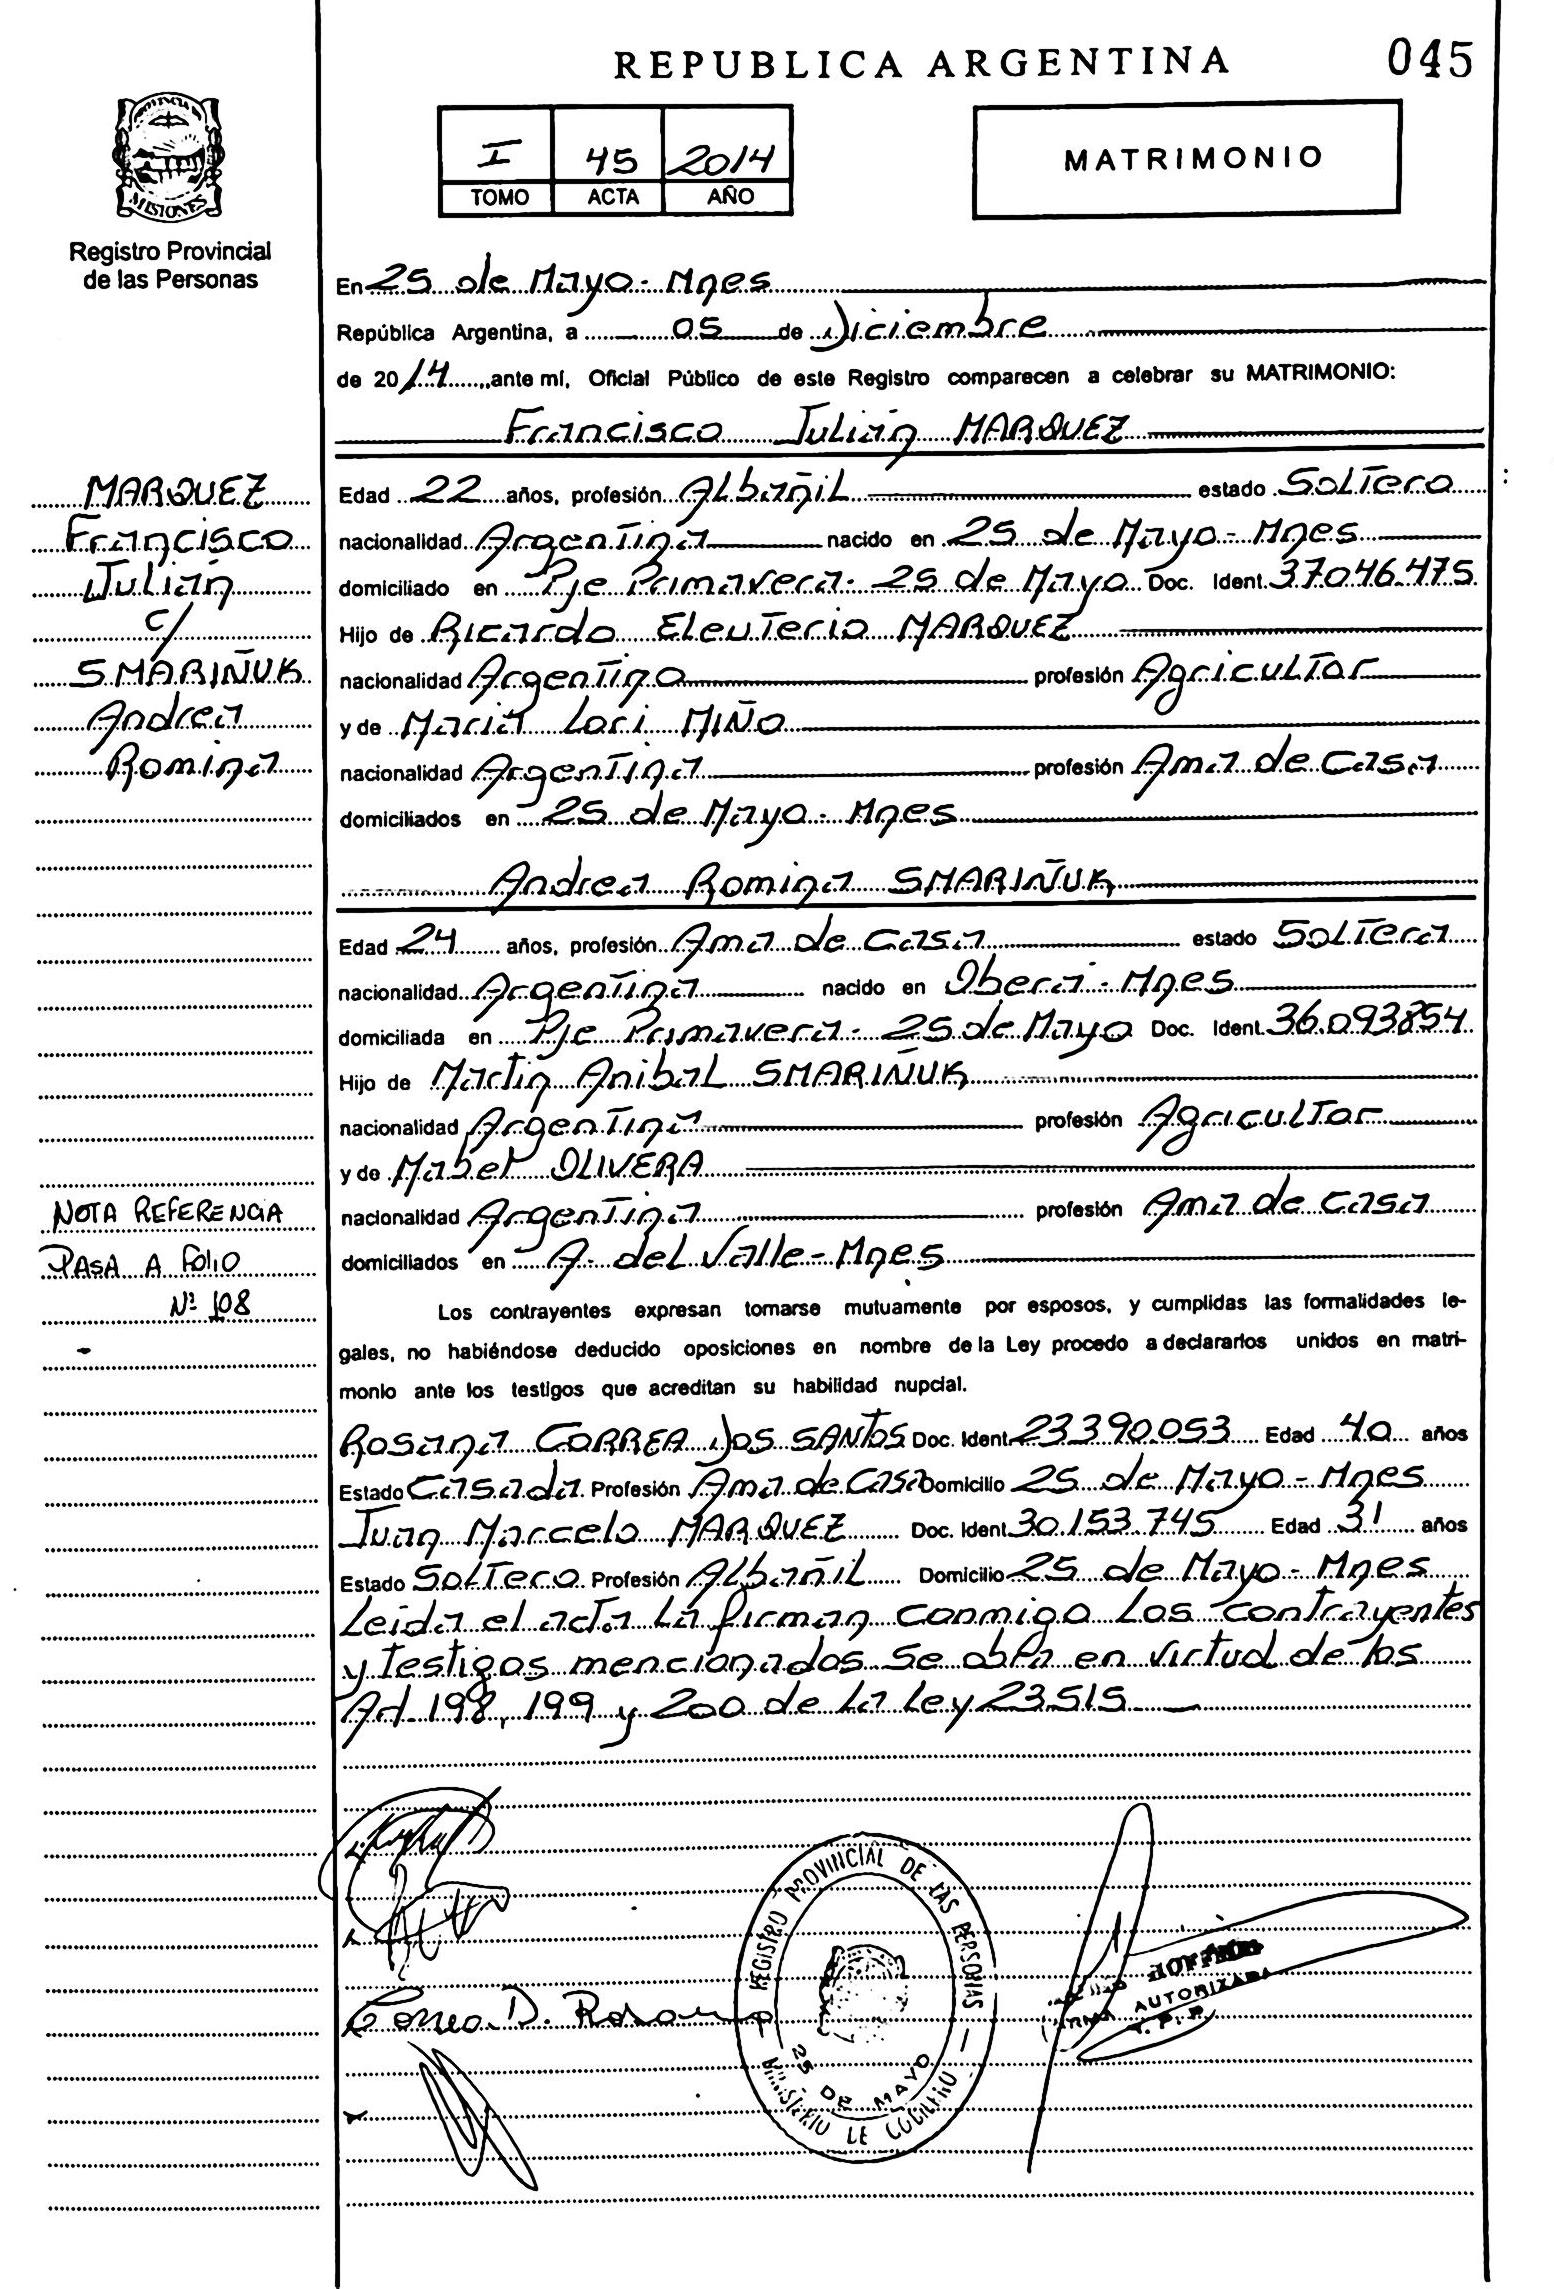 REPUBLICA ARGENTINA
045
PROVINCIA
MISIONES
Registro Provincial
de las Personas
I 45 2014
TOMO ACTA AÑO
MATRIMONIO
En 25 de Mayo - Mnes
República Argentina, a 05 de Diciembre
de 2014 ante mí, Oficial Público de este Registro comparecen a celebrar su MATRIMONIO:
Francisco Julián MARQUEZ
Edad 22 años, profesión Albañil estado Soltero
nacionalidad Argentina nacido en 25 de Mayo - Mnes
domiciliado en Pje Primavera - 25 de Mayo Doc. Ident. 37.046.475
Hijo de Ricardo Eleuterio MARQUEZ
nacionalidad Argentino profesión Agricultor
y de Maria Lori MIÑO
nacionalidad Argentina profesión Ama de Casa
domiciliados en 25 de Mayo - Mnes
MARQUEZ
Francisco
Julián
c/
SMARIÑUK
Andrea
Romina
Andrea Romina SMARIÑUK
Edad 24 años, profesión Ama de Casa estado Soltera
nacionalidad Argentina nacido en Oberá - Mnes
domiciliada en Pje Primavera - 25 de Mayo Doc. Ident. 36.093854
Hijo de Martin Anibal SMARIÑUK
nacionalidad Argentina profesión Agricultor
y de Mabel OLIVERA
nacionalidad Argentina profesión Ama de Casa
domiciliados en A. del Valle - Mnes
NOTA REFERENCIA
PASA A FOLIO
Nº 108
-
Los contrayentes expresan tomarse mutuamente por esposos, y cumplidas las formalidades le-
gales, no habiéndose deducido oposiciones en nombre de la Ley procedo a declararlos unidos en matri-
monio ante los testigos que acreditan su habilidad nupcial.
Rosana CORREA DOS SANTOS Doc. Ident. 23.390.053 Edad 40 años
Estado Casada Profesión Ama de Casa Domicilio 25 de Mayo - Mnes
Juan Marcelo MARQUEZ Doc. Ident. 30.153.745 Edad 31 años
Estado Soltero Profesión Albañil Domicilio 25 de Mayo - Mnes
Leida el acta la firman conmigo los contrayentes
y testigos mencionados se obra en virtud de los
Art. 198, 199 y 200 de la Ley 23.515
Correa D. Rosana
REGISTRO PROVINCIAL DE LAS PERSONAS
25 DE MAYO
MINISTERIO DE GOBIERNO
FIRMA AUTORIZADA
R. P. P.